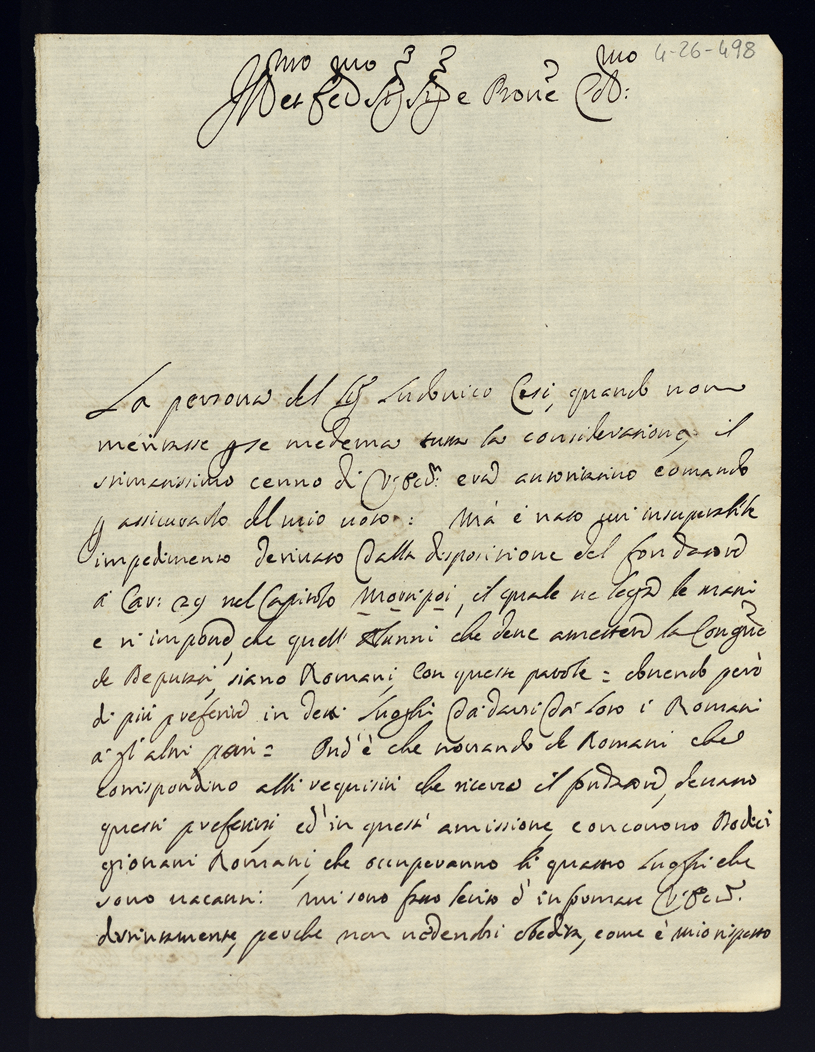 4-26-498
Ill.mo et Ecc.mo Sig.r Sig.r e Pron.e Col.mo
La persona del Sig.r Ludovico Cesi, quando non
meritasse p se medema tutta la consideratione, il
stimatissimo cenno di V. Ecc. era autorissimo comando
p assicurarlo del mio voto: Mà è nato un'insuperabile
impedimento derivato dalla dispositione del fondatore
à Car: 29 nel Capitolo Morti poi, il quale ne lega le mani
e n'impone, che quelli Alunni che deve ametter la Cong.ne
de Deputati, siano Romani, con queste parole = dovendo però
di più preferire in detti luoghi dà darsi dà loro i Romani
à gl'altri pari = Ond'è che trovando de Romani che
corrispondino alli requisiti che ricerca il fondatore, devano
questi preferirsi, ed in questa amissione, concorrono Dodici
giovani Romani, che occuperanno li quattro luoghi che
sono vacanti: mi sono fatto lecito d'informare V. Ecc.
distintamente, perche non vedendosi obedita, come è mio rispetto